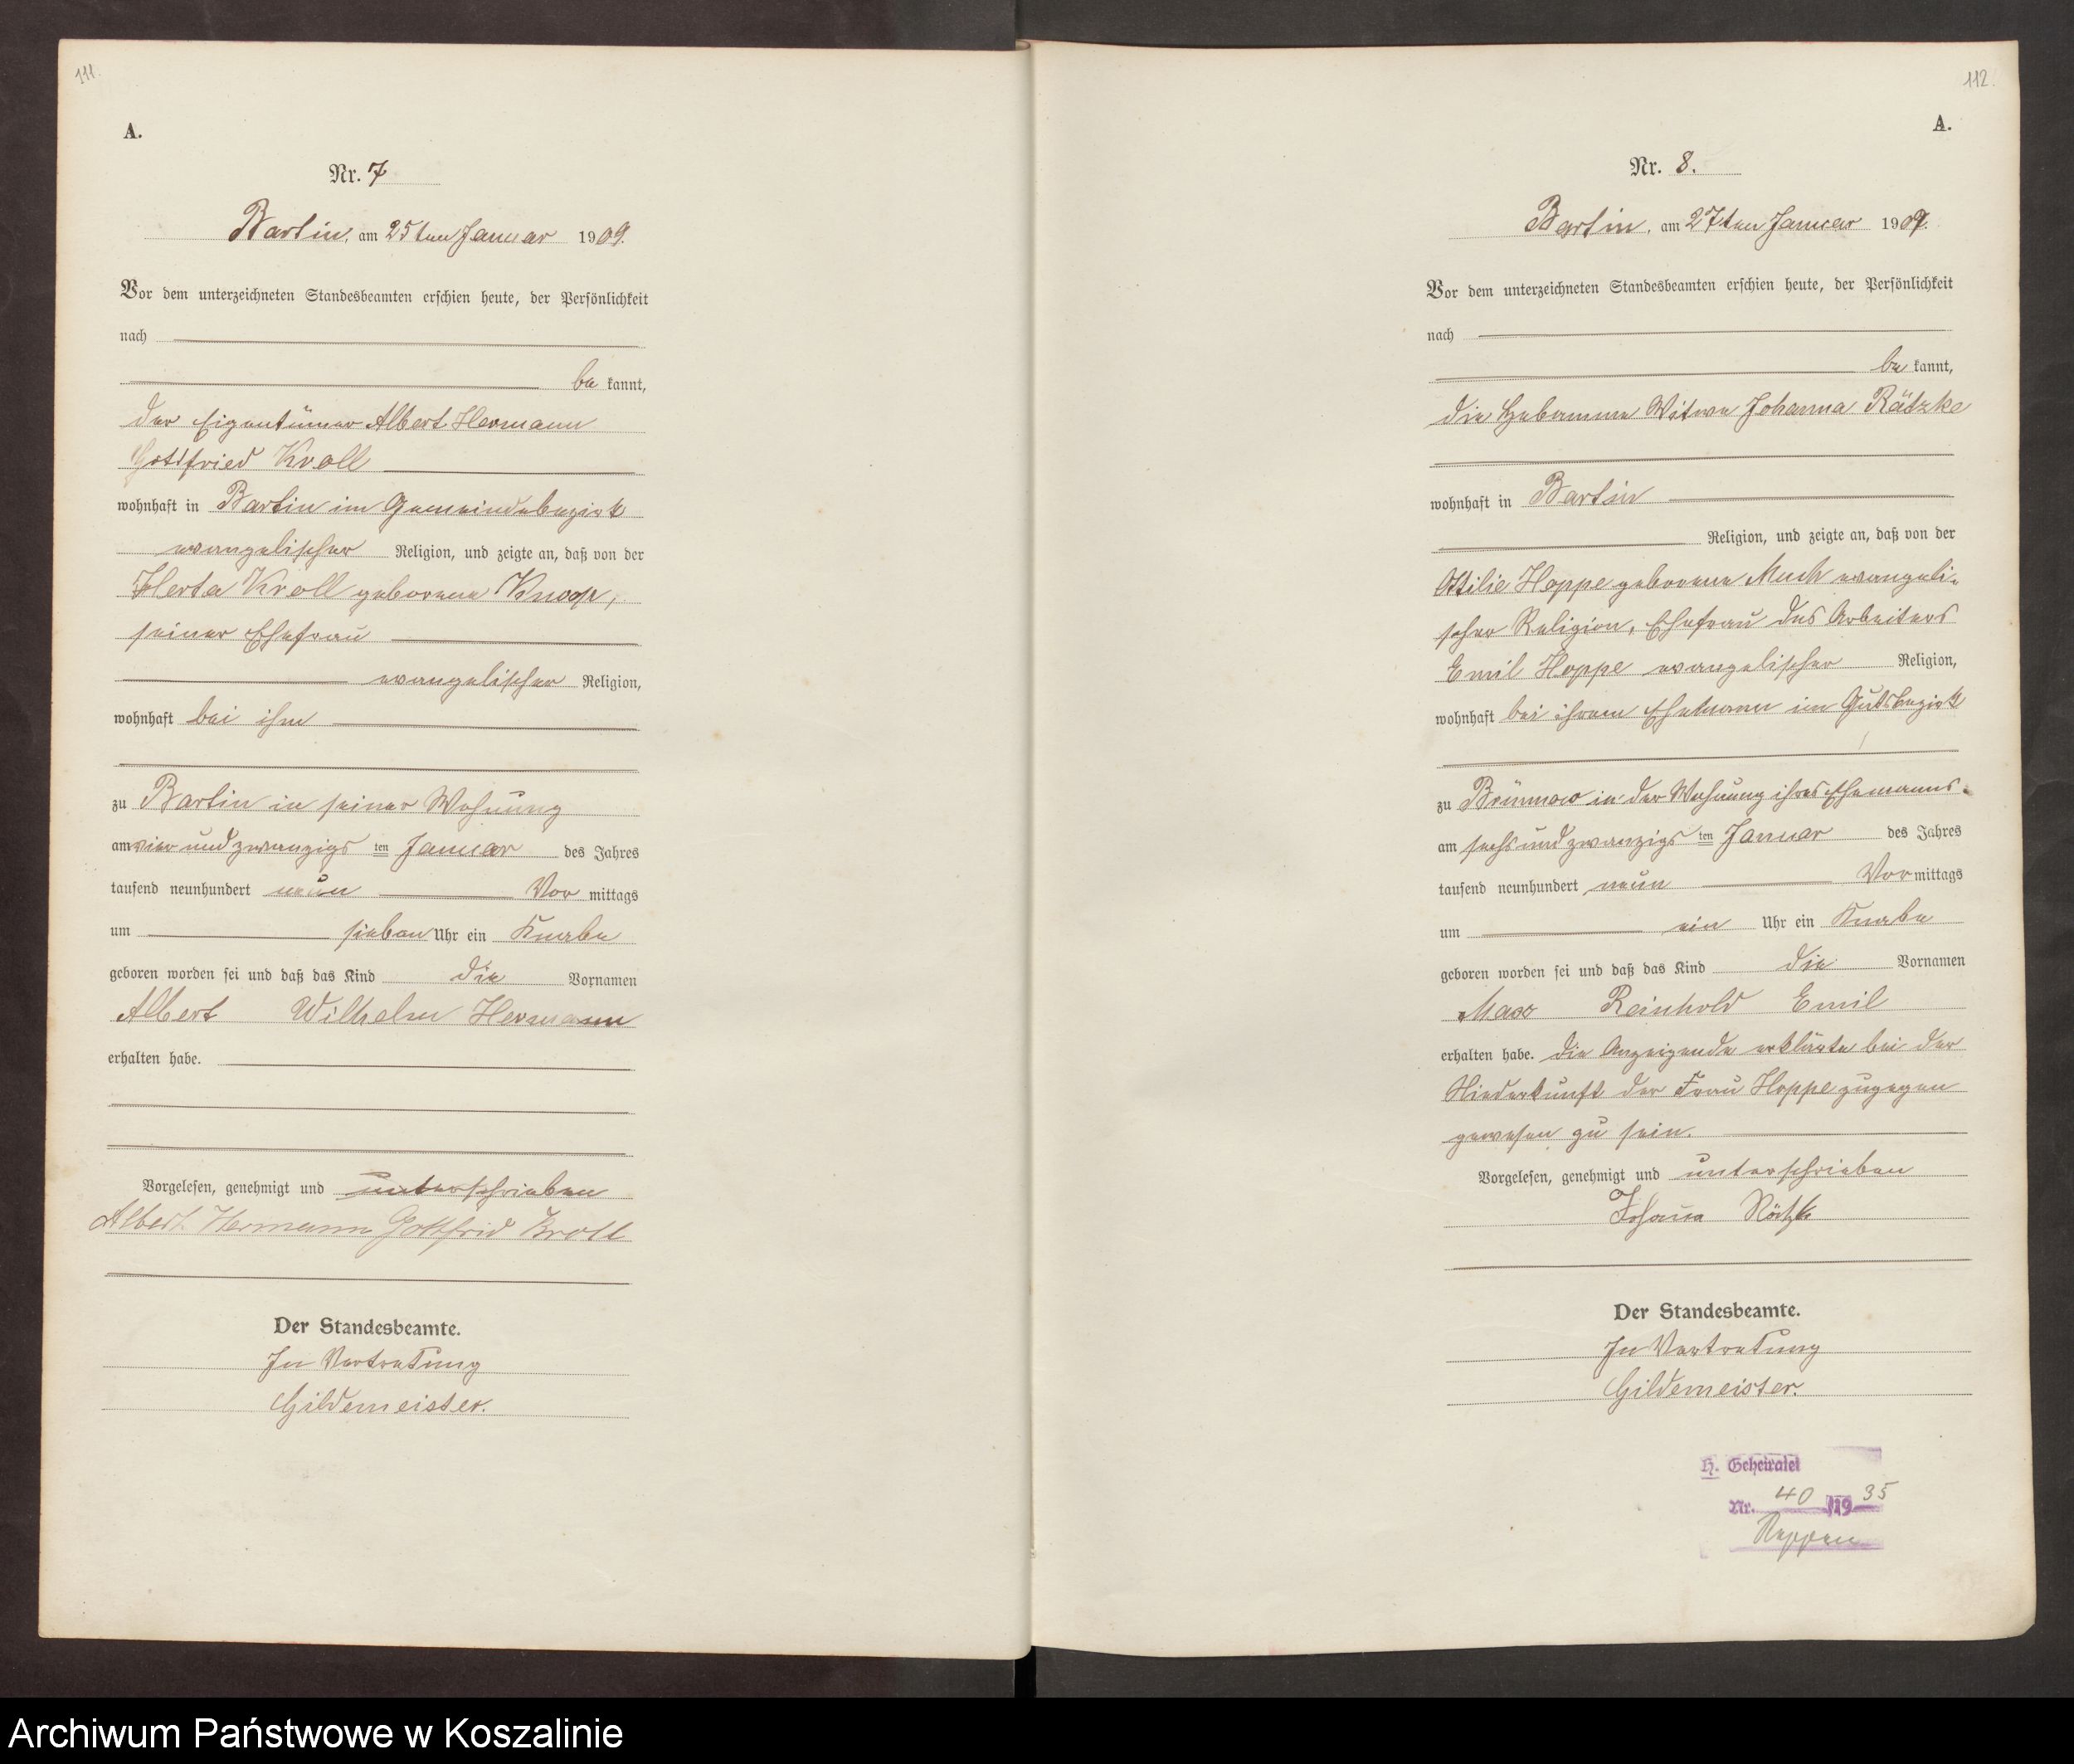 111.
A.
Nr. 7
Bartin, am 25ten Januar 1909.
Vor dem unterzeichneten Standesbeamten erschien heute, der Persönlichkeit
nach
be kannt,
der Eigentümer Albert Hermann
Gottfried Kroll
wohnhaft in Bartin im Gemeindebezirk
evangelischer Religion, und zeigte an, daß von der
Herta Kroll geborene Knoop,
seiner Ehefrau
evangelischer Religion,
wohnhaft bei ihm
zu Bartin in seiner Wohnung
am vier und zwanzigs ten Januar des Jahres
tausend neunhundert neun Vor mittags
um sieben Uhr ein Knabe
geboren worden sei und daß das Kind die Vornamen
Albert Wilhelm Hermann
erhalten habe.
Vorgelesen, genehmigt und unterschrieben
Albert Hermann Gottfrid Kroll
Der Standesbeamte.
In Vertretung
Gildemeister.
112.
A.
Nr. 8.
Bartin, am 27ten Januar 1909.
Vor dem unterzeichneten Standesbeamten erschien heute, der Persönlichkeit
nach
be kannt,
die Hebamme Witwe Johanna Rätzke
wohnhaft in Bartin
Religion, und zeigte an, daß von der
Ottilie Hoppe geborene Much evangeli-
scher Religion, Ehefrau des Arbeiters
Emil Hoppe evangelischer Religion,
wohnhaft bei ihrem Ehemann im Gutsbezirk
zu Brünnow in der Wohnung ihres Ehemanns.
am sechs und zwanzigs ten Januar des Jahres
tausend neunhundert neun Vor mittags
um ein Uhr ein Knabe
geboren worden sei und daß das Kind die Vornamen
Max Reinhold Emil
erhalten habe. Die Anzeigende erklärte bei der
Niederkunft der Frau Hoppe zugegen
gewesen zu sein.
Vorgelesen, genehmigt und unterschrieben
Johanna Rätzke
Der Standesbeamte.
In Vertretung
Gildemeister.
H. Geheiratet
Nr. 40 /1935
Reppen
Archiwum Państwowe w Koszalinie